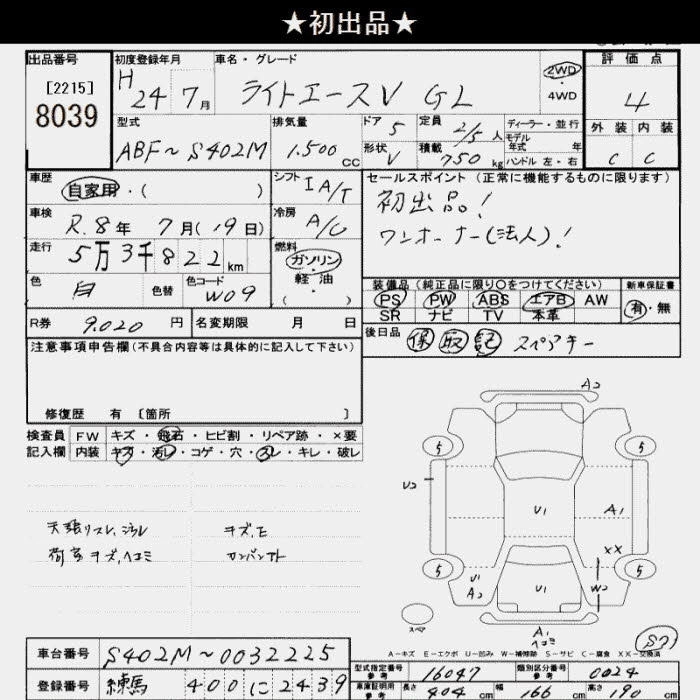 ★初出品★
出品番号
[2215]
8039
初度登録年月
H 24年 7月
車名・グレード
ライトエースV GL
2WD
・
4WD
評価点
4
外装 内装
C C
型式
ABF~S402M
排気量
1.500 cc
ドア 5
形状 V
定員 2/5人
積載 750 kg
ディーラー・並行
モデル
年式 年
ハンドル 左・右
車歴
自家用・( )
シフト
IA/T
車検
R.8年 7月(19日)
冷房
A/C
走行
5万3千822km
燃料
ガソリン
・
軽油
( )
色
白
色替
色コード
W09
R券 9.020円
名変期限 月 日
セールスポイント (正常に機能するものに限ります)
初出品!
ワンオーナー(法人)!
装備品(純正品に限り○をつけてください)
PS PW ABS エアB AW
SR ナビ TV 本革
新車保証書
有・無
後日品
保 取 記 スペアキー
注意事項申告欄(不具合内容等は具体的に記入して下さい)
修復歴 有〔箇所 〕
検査員
記入欄
FW キズ・飛石・ヒビ割・リペア跡・×要
内装 キズ・汚レ・コゲ・穴・スレ・キレ・破レ
天張リスレ、汚レ
荷室キズ、ヘコミ
A2
5
5
U2
U1
A1
XX
5
5
U1
A2
U1
W2
スペア
A1
ヘコミ
A-キズ E-エクボ U-凹み W-補修跡 S-サビ C-腐食 XX-交換済
車台番号 S402M~0032225
登録番号 練馬 400 に 2439
型式指定番号
参考
16047
類別区分番号
参考
0024
車庫証明用
参考
長さ 404 cm 幅 166 cm 高さ 190 cm